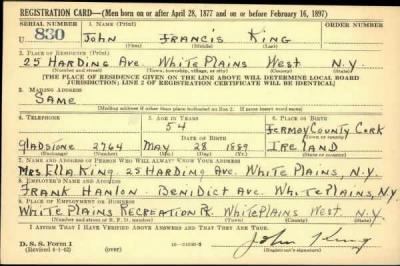 REGISTRATION CARD—(Men born on or after April 28, 1877 and on or before February 16, 1897)
SERIAL NUMBER
1. NAME (Print)
U 830 John Francis King
(First) (Middle) (Last)
2. PLACE OF RESIDENCE (Print)
25 Harding Ave White Plains West N.Y
(Number and street) (Town, township, village, or city) (County) (State)
[THE PLACE OF RESIDENCE GIVEN ON THE LINE ABOVE WILL DETERMINE LOCAL BOARD
JURISDICTION; LINE 2 OF REGISTRATION CERTIFICATE WILL BE IDENTICAL]
3. MAILING ADDRESS
Same
[Mailing address if other than place indicated on line 2. If same insert word same]
4. TELEPHONE
5. AGE IN YEARS
6. PLACE OF BIRTH
54
Fermoy County Cork
DATE OF BIRTH
(Town or county)
Gladstone 2764 May 28 1889 Ireland
(Exchange) (Number) (Mo.) (Day) (Yr.) (State or country)
7. NAME AND ADDRESS OF PERSON WHO WILL ALWAYS KNOW YOUR ADDRESS
Mrs Ella King 25 Harding Ave. White Plains, N.Y.
8. EMPLOYER'S NAME AND ADDRESS
Frank Hanlon - Benidict Ave. White Plains, N.Y.
9. PLACE OF EMPLOYMENT OR BUSINESS
White Plains Recreation Pk. White Plains West. N.Y.
(Number and street or R. F. D. number) (Town) (County) (State)
I AFFIRM THAT I HAVE VERIFIED ABOVE ANSWERS AND THAT THEY ARE TRUE.
D. S. S. Form 1
(Revised 4-1-42) (over)
John King
(Registrant's signature)